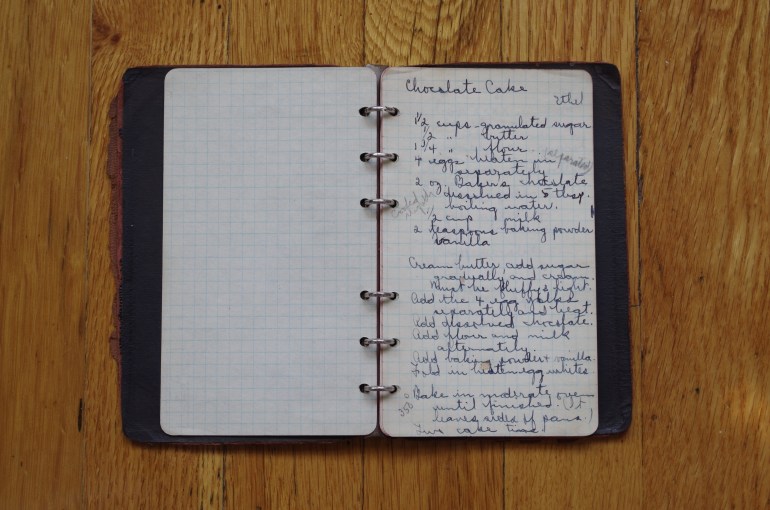 Chocolate Cake
Ethel
1 1/2 cups granulated sugar
1/2 " butter
1 3/4 " flour
4 eggs beaten in (separated)
separately
2 oz Baker's chocolate
dissolved in 5 tbsp.
boiling water.
1/2 cup milk
2 teaspoons baking powder
vanilla
Cream butter, add sugar
gradually and cream.
Must be fluffy & light.
Add the 4 egg yolks
separately and beat.
Add dissolved chocolate.
Add flour and milk
alternately.
Add baking powder + vanilla
Fold in beaten egg whites
Bake in moderate oven
350°
until finished. (It
leaves sides of pans)
Two cake tins.